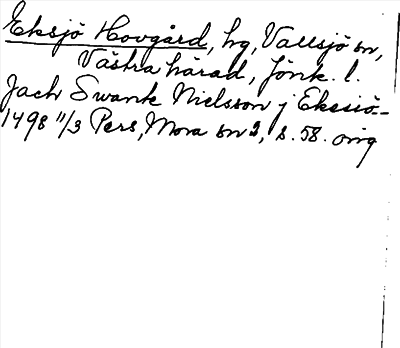 Eksjö Hovgård, hg, Vallsjö sn,
Västra härad, Jönk. l.
Jach Swank Nielsson j Eksiö--
1498 11/3 Pers, Mora sn 2, s. 58. orig